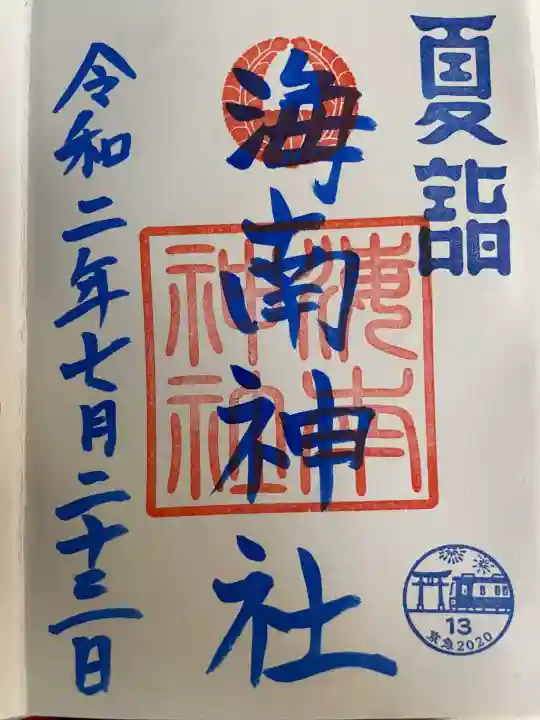 夏詣
海南神社
海南
神社
令和二年七月二十三日
13
京急2020